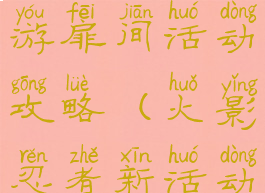 yóu fēi jiān huó dòng
游扉间活动
gōng lüè huǒ yǐng
攻略（火影
rěn zhě xīn huó dòng
忍者新活动